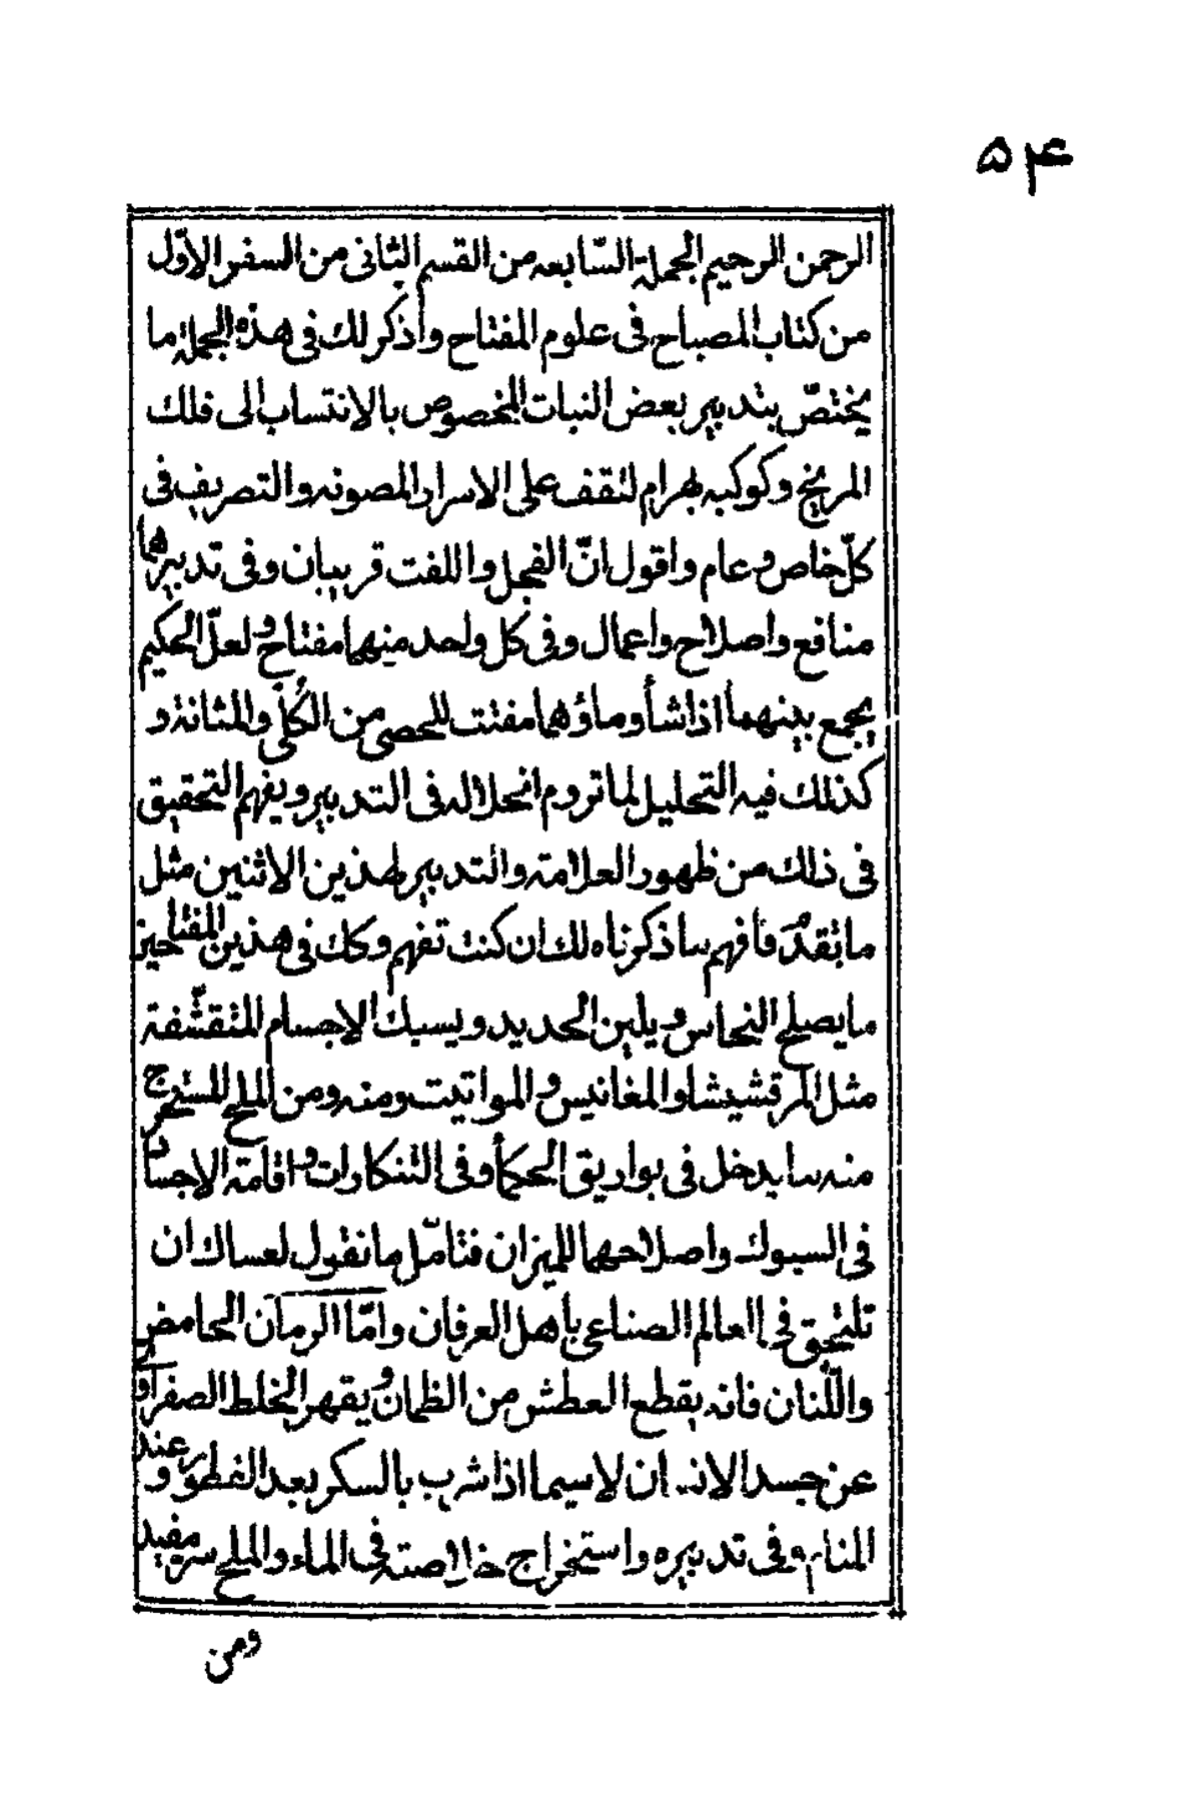 ٥٤
الرحمن الرحيم الجملة السّابعه من القسم الثانى من السفر الاوّل
من كتاب المصباح فى علوم المفتاح واذكر لك فى هذه الجملة ما
يختصّ بتدبير بعض النبات المخصوص بالانتساب الى فلك
المريخ وكوكبه بهرام لتقف على الاسرار المصونه والتصريف فى
كلّ خاص وعام واقول انّ الفجل واللفت قريبان وفى تدبيرها
منافع واصلاح واعمال وفى كل واحد منهما مفتاح ولعلّ الحكيم
يجمع بينهما اذا شأ وماؤهما مفتت للحصى من الكُلى والمثانة و
كذلك فيه التحليل لما تروم انحلاله فى التدبير ويفهم التحقيق
فى ذلك من ظهور العلامة والتدبير لهذين الاثنين مثل
ما تقدّم فافهم ما ذكرناه لك ان كنت تفهم وكك فى هذين المفتاحين
ما يصلح النحاس ويلين الحديد ويسبك الاجسام المتقشّفة
مثل المرقشيشا والمغانيس والمواتيت ومنه ومن الملح المستخرج
منه ما يدخل فى بواريق الحكمأ وفى التنكارات واقامة الاجساد
فى السبوك واصلاحها للميزان فتامّل ما نقول لعساك ان
تلتحق فى العالم الصناعى بأهل العرفان وامّا الرمان الحامض
واللّفان فانه يقطع العطش من الظمان ويقهر الخلط الصفراوى
عن جسد الانسان لا سيما اذا شرب بالسكر بعد الفطور وعند
المنام وفى تدبيره واستخراج خلاصته فى الماء والملح سر مفيد
ومن